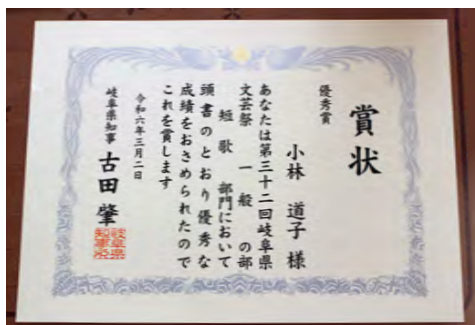 賞状
優秀賞
小林 道子 様
あなたは第三十二回岐阜県
文芸祭 一般 の部
短歌 部門において
頭書のとおり優秀な
成績をおさめられたので
これを賞します
令和六年三月二日
岐阜県知事 古田 肇
岐阜県
知事之印